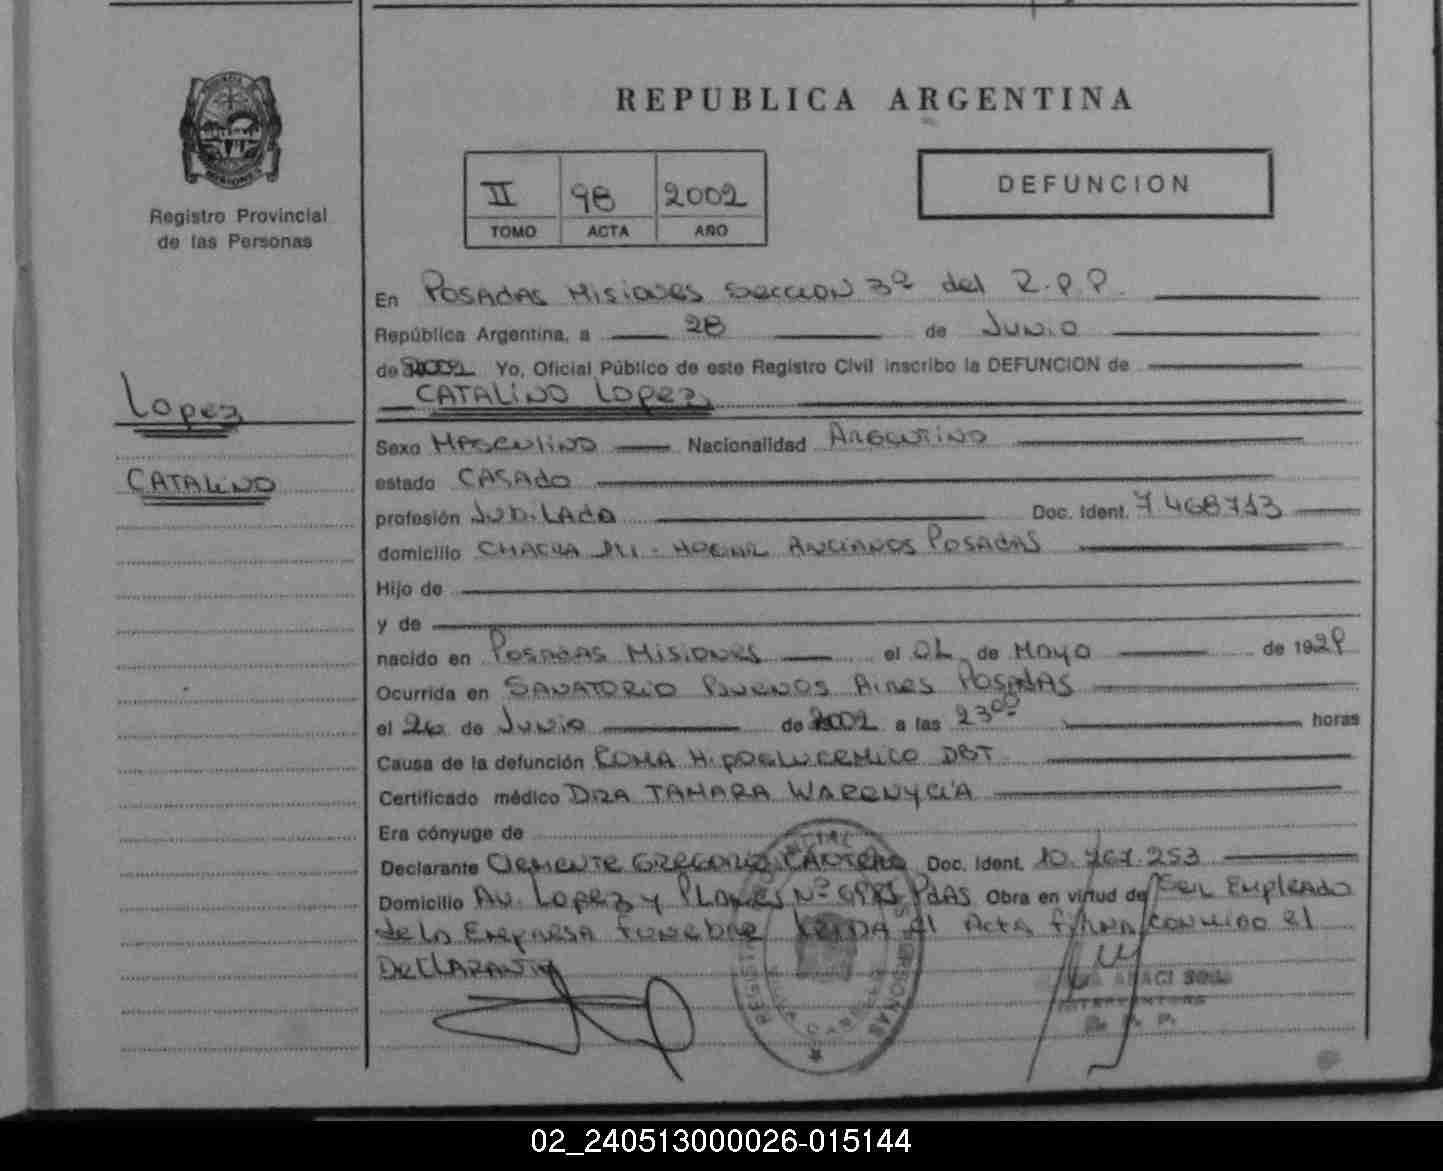 REPUBLICA ARGENTINA
II 98 2002
TOMO ACTA AÑO
DEFUNCION
Registro Provincial
de las Personas
En POSADAS MISIONES SECCION 3ª del R.P.P.
República Argentina, a 28 de JUNIO
de 2002 Yo, Oficial Público de este Registro Civil inscribo la DEFUNCION de
CATALINO LOPEZ
Lopez
CATALINO
Sexo MASCULINO Nacionalidad ARGENTINO
estado CASADO
profesión JUBILADO Doc. Ident. 7.468713
domicilio CHACRA HOGAR ANCIANOS POSADAS
Hijo de
y de
nacido en POSADAS MISIONES el de MAYO de 1929
Ocurrida en SANATORIO BUENOS AIRES POSADAS
el 26 de JUNIO de 2002 a las 23 00 horas
Causa de la defunción COMA HIPOGLUCEMICO DBT
Certificado médico DRA TAMARA WARENYCIA
Era cónyuge de
Declarante CLEMENTE GREGORIO Doc. Ident. 10.767.253
Domicilio AV. LOPEZ y PLANES Nº PDAS Obra en virtud de SER EMPLEADO
de la EMPRESA FUNEBRE LEIDA el Acta FIRMA CONMIGO el
DECLARANTE
02_240513000026-015144